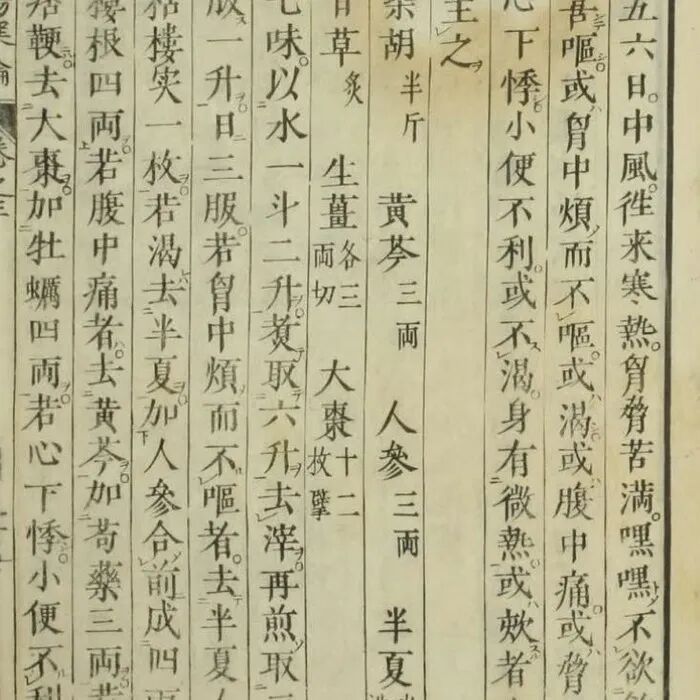 五六日。中風。徃來寒熱。胷脅苦滿。嘿嘿不欲
喜嘔。或胷中煩而不嘔。或渴。或腹中痛。或脅
心下悸。小便不利。或不渴。身有微熱。或欬者
主之
柴胡半斤 黃芩三両 人參三両 半夏
甘草炙 生薑各三両切 大棗十二枚擘
七味。以水一斗二升。煑取六升。去滓再煎取
服一升。日三服。若胷中煩而不嘔者。去半夏人
栝樓実一枚。若渴去半夏加人參合前成四
樓根四両。若腹中痛者。去黃芩加芍藥三両若
痞鞕去大棗加牡蠣四両。若心下悸。小便不利
論 卷之三